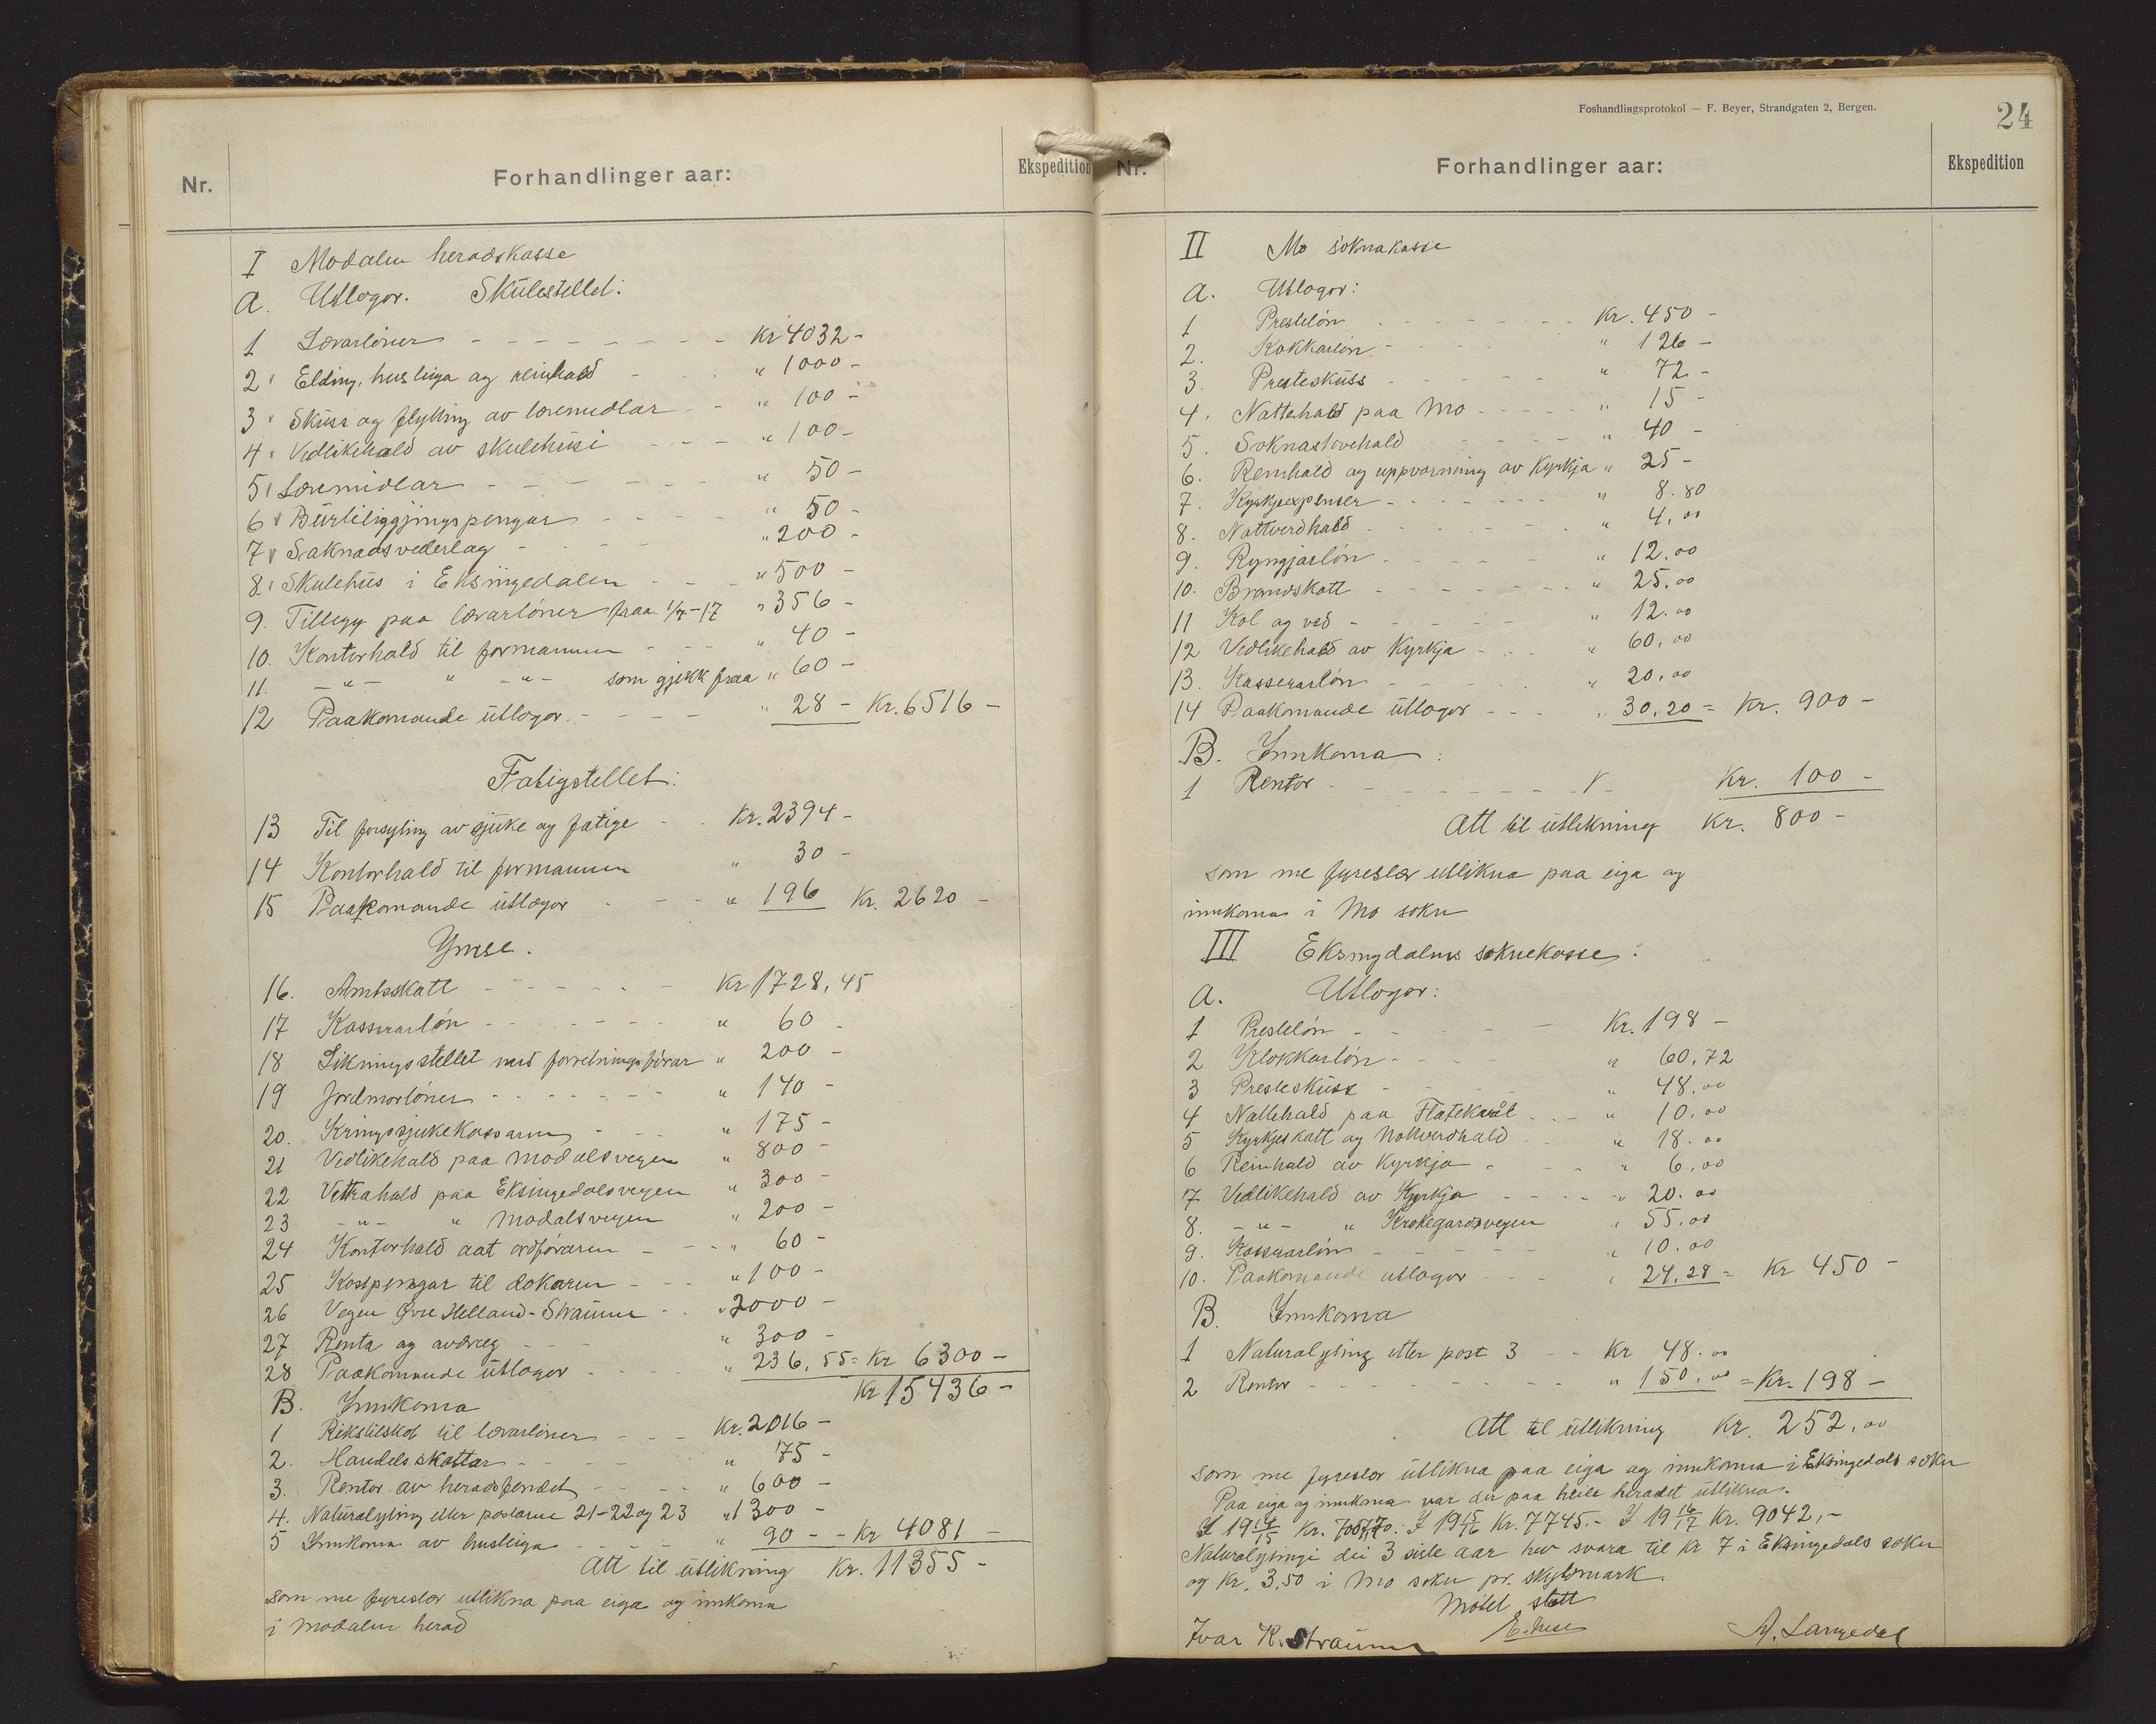 Nr.
Forhandlinger aar:
Ekspedition
I Modalen heradskasse
A. Utlogor. Skülestellet:
1 Lærarlöner - - - - - - - - Kr 4032 -
2 Elding, husleiga og reinhald - - - " 1000 -
3 Sküss og flytting av læremidlar - - " 100 -
4 Vedlikehald av skulehüsi - - - " 100 -
5 Læremidlar - - - - - - - " 50 -
6 Bürtliggjingspengar - - - - " 50 -
7 Saknadsvederlag - - - - " 200 -
8 Skulehüs i Eksingedalen - - - " 500 -
9. Tillegg paa lærarlöner fraa 1/7-17 " 356 -
10. Kontorhald til formannen - - - " 40 -
11. -"- " -"- som gjekk fraa " 60 -
12 Paakomande ütlogor - - - - " 28 - Kr. 6516 -
Fatigstellet:
13 Til forsyting av sjüke og fatige - - Kr. 2394 -
14 Kontorhald til formannen " 30 -
15 Paakomande ütlogor - - - " 196 Kr. 2620 -
Ymse.
16. Amtsskatt - - - - - - Kr 1728,45
17 Kasserarlön - - - - - - " 60 -
18 Likningsstellet med forretningsförar " 200 -
19 Jordmorlöner - - - - - - - " 140 -
20. Kringsjukekassarne - - - " 175 -
21 Vedlikehald paa Modalsvegen " 800 -
22 Vettrahald paa Eksingedalsvegen " 300 -
23 -"- " Modalsvegen " 200 -
24 Kontorhald aat ordföraren - - - " 60 -
25 Kostpengar til dokaren - - - " 100 -
26 Vegen Övre Helland-Straume - - " 2000 -
27 Renta og avdrag - - - " 300 -
28 Paakomande ütlogor - - - - " 236,55 = Kr 6300 -
Kr 15436 -
B. Innkoma
1 Rikstilskot til lærarlöner - - - Kr. 2016 -
2. Handelsskattar - - - - " 75 -
3. Rentor av heradsfondet - - - - " 600 -
4. Naturalyting etter postarne 21-22 og 23 " 1300 -
5 Innkoma av husleiga - - - - " 90 - - Kr 4081 -
Att til ütlikning Kr. 11355 -
som me fyreslær utlikna paa eiga og innkoma
i Modalen herad
Foshandlingsprotokol — F. Beyer, Strandgaten 2, Bergen.
24
Nr.
Forhandlinger aar:
Ekspedition
II Mo soknakasse
A. Utlogor:
1 Prestelön - - - - - - - Kr. 450 -
2. Klokkarlön - - - - " 126 -
3. Presteskuss - - - - - " 72 -
4. Nattehald paa Mo - - - - - " 15 -
5. Soknastovehald - - - - " 40 -
6. Reinhald og uppvarming av Kyrkja " 25 -
7. Kyrkjeexpenser - - - - - - - " 8.80
8. Nattverdhald - - - - - - " 4.00
9. Ryngjarlön - - - - - " 12.00
10. Brandskatt - - - - - - - " 25.00
11 Kol og ved - - - - - " 12.00
12 Vedlikehald av Kyrkja - - - " 60.00
13. Kasserarlön - - - - - " 20.00
14 Paakomande ütlogor - - - " 30.20 = Kr. 900 -
B. Innkoma:
1 Rentor - - - - - - - - Kr. 100 -
Att til ütlikning Kr. 800 -
som me fyreslær utlikna paa eiga og
innkoma i Mo sokn
III Eksingdalens soknekasse:
A. Utlogor:
1 Prestelön - - - - - - Kr. 198 -
2 Klokkarlön - - - - " 60,72
3 Presteskuss - - - - - " 48.00
4 Nattehald paa Flatekvål - - - " 10.00
5 Kyrkjeskatt og Nattverdhald - - " 18.00
6 Reinhald av Kyrkja - - - - " 6.00
7 Vedlikehald av Kyrkja - - - - - " 20.00
8. -"- " Krokegardsvegen " 55.00
9. Kasserarlön - - - - - - " 10.00
10. Paakomande utlogor - - - " 24,28 = Kr 450 -
B. Innkoma
1 Naturalyting etter post 3 - - Kr 48.00
2 Rentor - - - - - - - - " 150.00 = Kr. 198 -
Att til ütlikning Kr. 252.00
som me fyreslær ütlikna paa eiga og innkoma i Eksingedals sokn
Paa eiga og innkoma var der paa heile heradet ütlikna.
I 19 14/15 Kr. I 19 15/16 Kr. 7745.- I 19 16/17 Kr. 9042,-
Naturalytingi dei 3 siste aar hev svara til Kr 7 i Eksingedals sokn
og Kr. 3,50 i Mo sokn pr. skyldmark.
Mötet slutt
Ivar K. Straume E. Nese A. Langedal